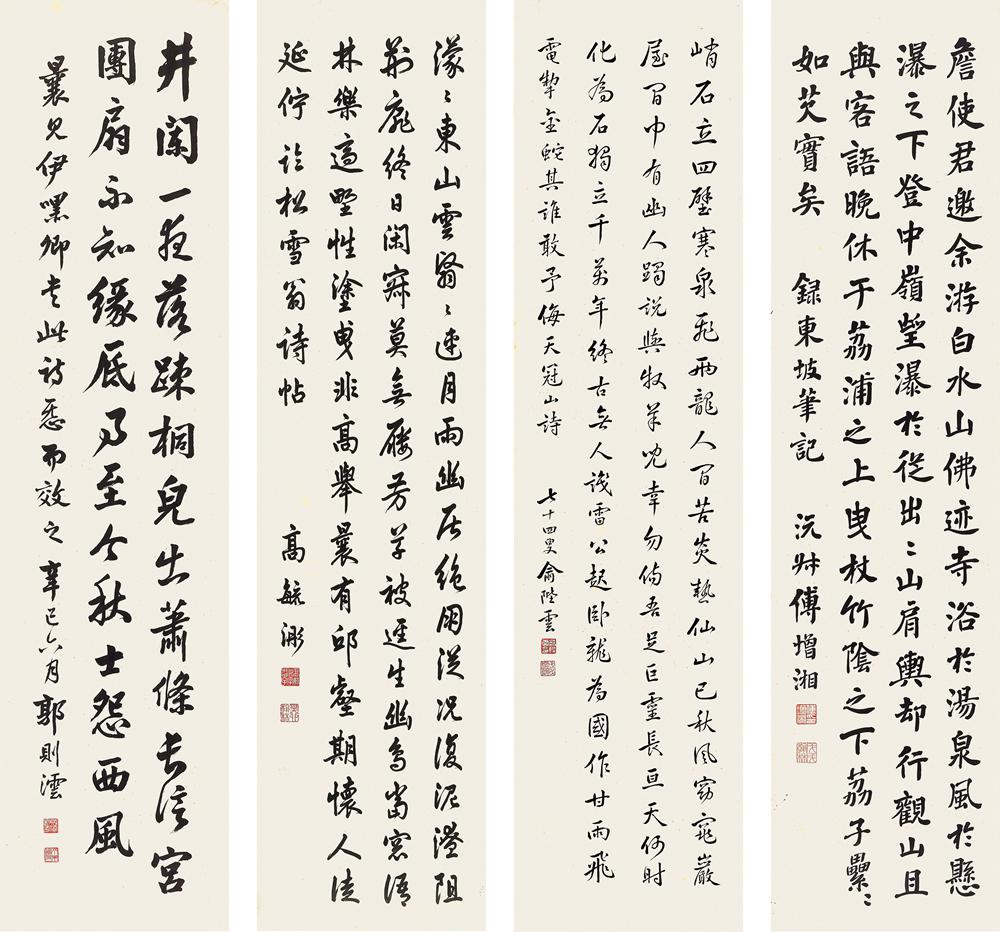 詹使君邀余游白水山佛迹寺浴於湯泉風於懸
瀑之下登中嶺望瀑於從出〻山肩輿却行觀山且
與客語晚休于荔浦之上曳杖竹陰之下荔子纍〻
如芡實矣 録東坡筆記 沅叔傅增湘
峭石立四壁寒泉飛兩龍人間苦炎熱仙山已秋風窈窕巖
屋間中有幽人躅説與牧羊兒幸勿傷吾足巨靈長亘天何時
化為石獨立千萬年終古無人識雷公起卧龍為國作甘雨飛
電掣金蛇其誰敢予侮天冠山詩 七十四叟俞陛雲
濛〻東山雲翳〻連月雨幽居絶朋從况復泥潦阻
荊扉終日閑寂莫無屨芳草被逕生幽鳥當窓語
林樂適野性塗曳非高舉曩有邱壑期懷人徒
延佇 臨松雪翁詩帖 高毓浵
井闌一夜落疎桐皃出蕭條長信宮
團扇不知緣底事至今秋士怨西風
曩見伊嘿卿書此詩愛而效之 辛巳六月郭則澐